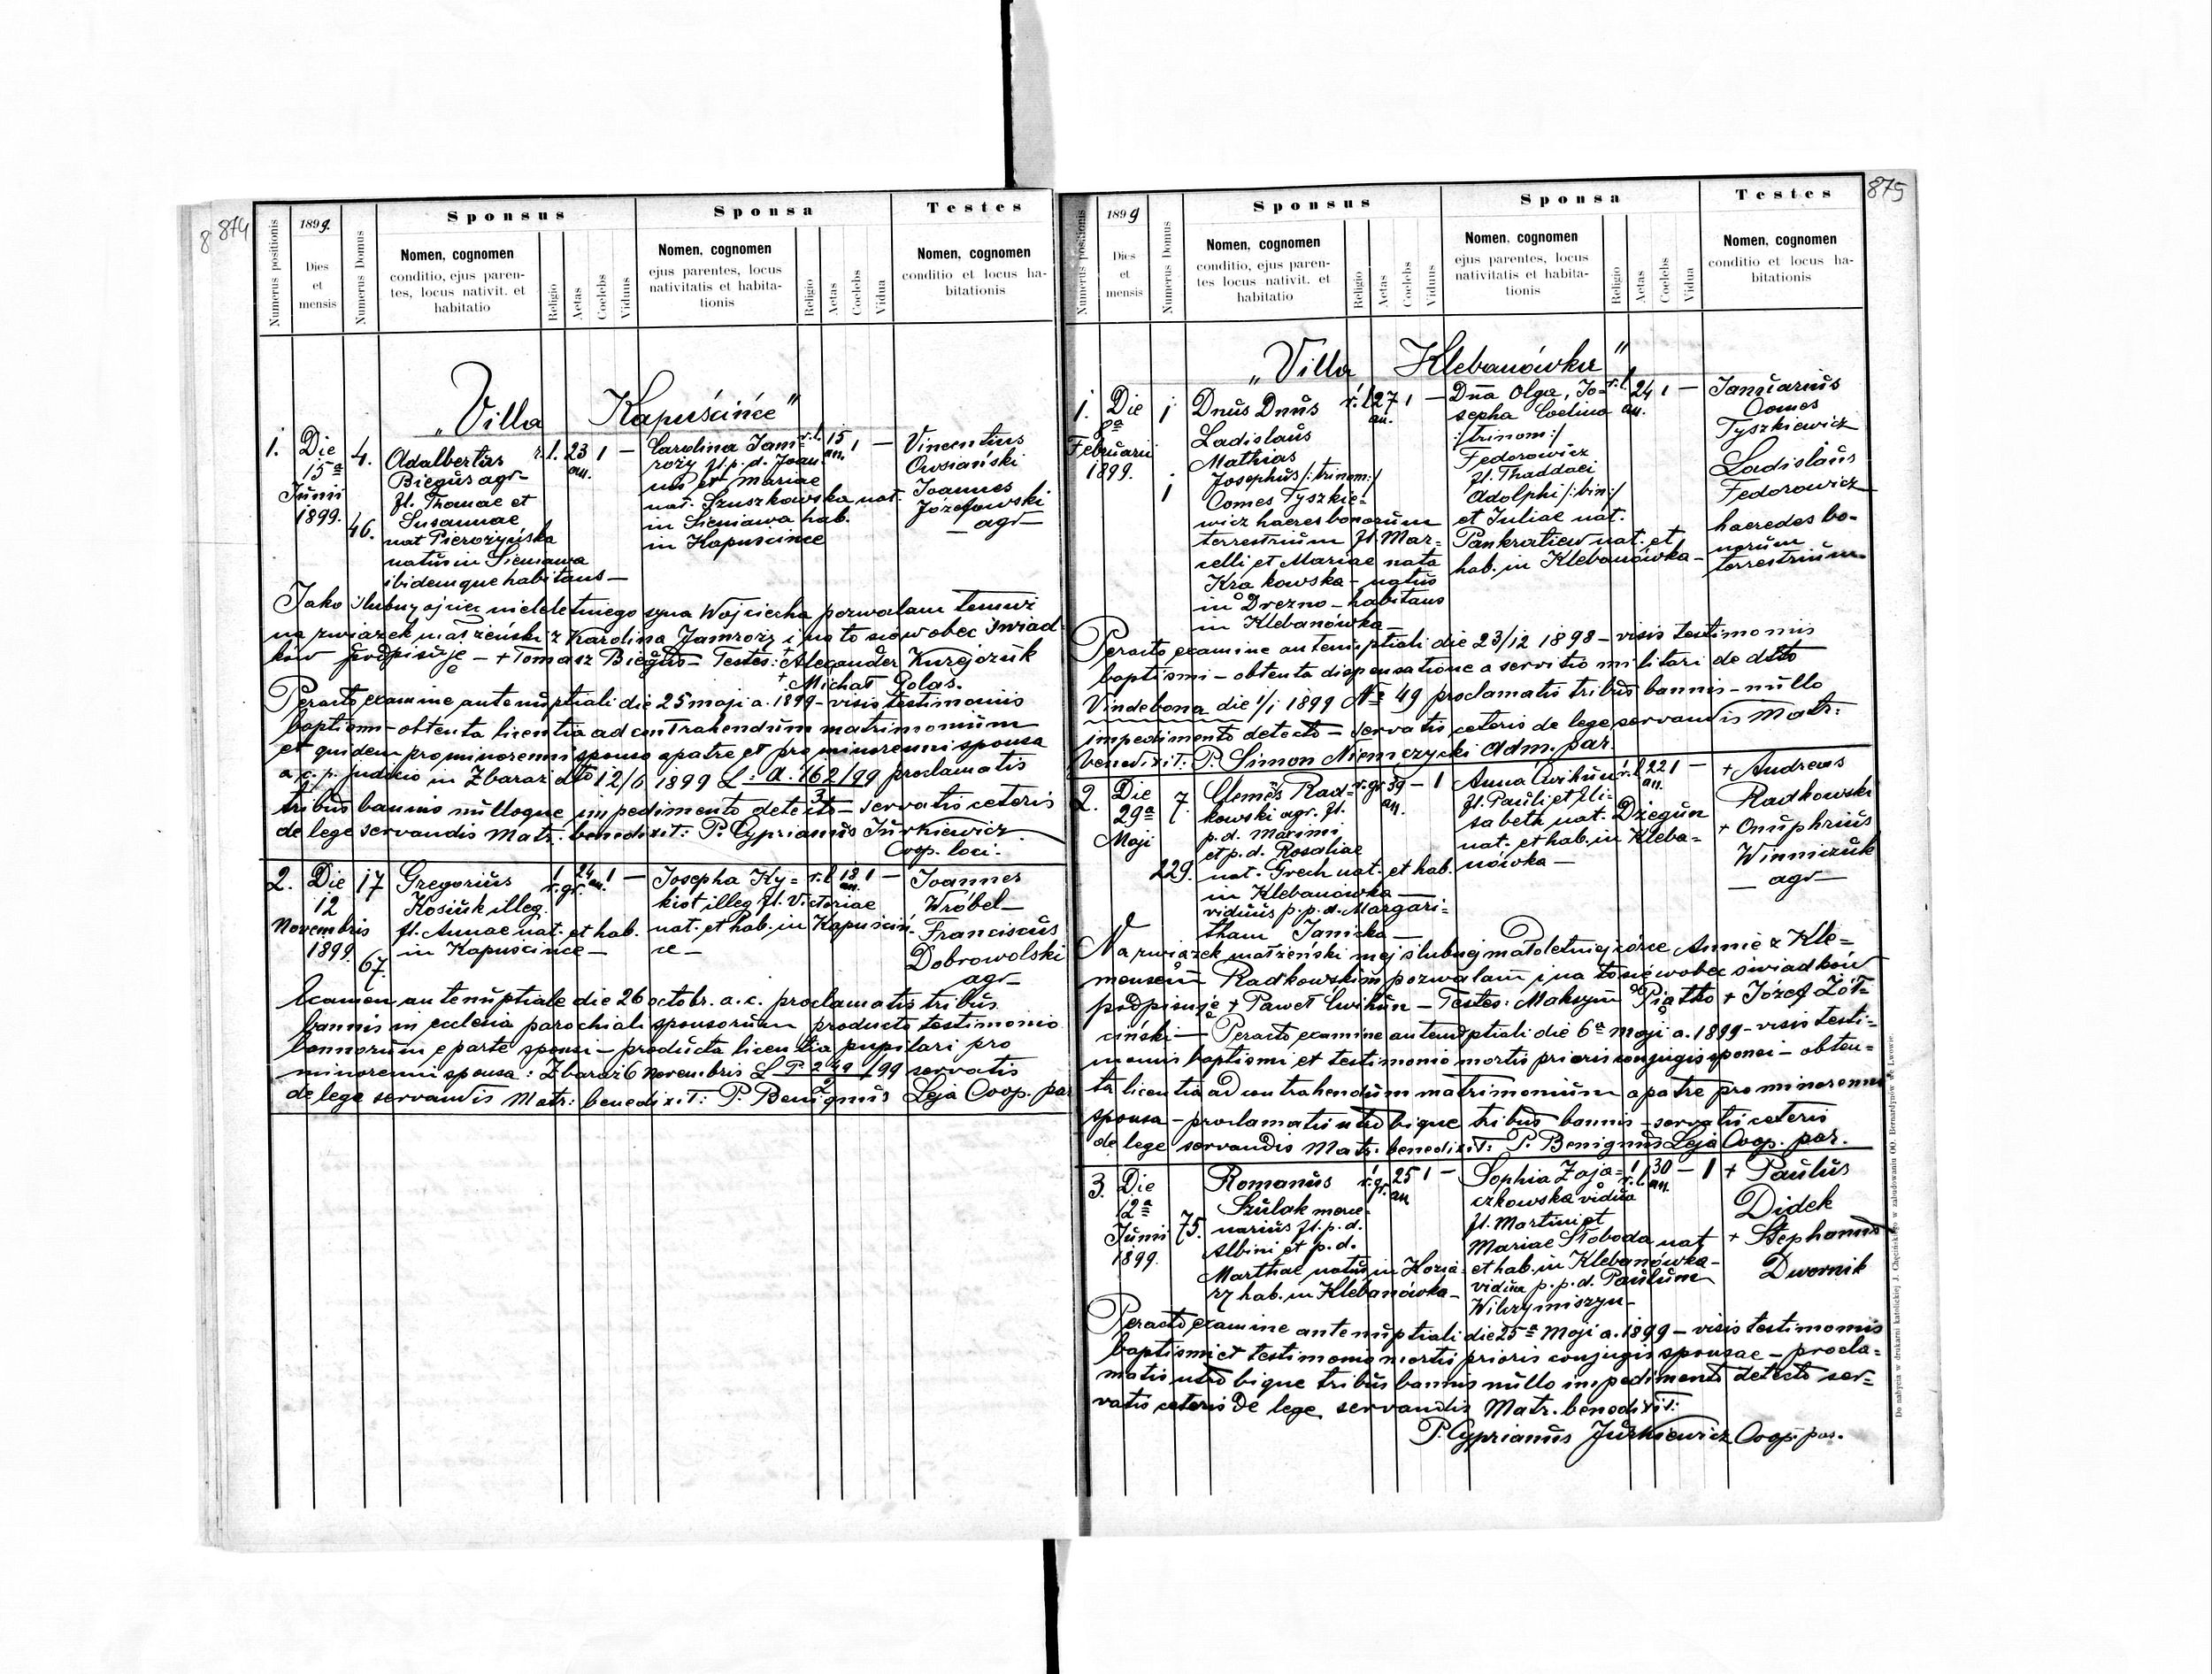 8 874
Numerus positionis
1899.
Dies
et
mensis
Numerus Domus
Sponsus
Nomen, cognomen
conditio, ejus paren-
tes, locus nativit. et
habitatio
Religio
Aetas
Coelebs
Viduus
Sponsa
Nomen, cognomen
ejus parentes, locus
nativitatis et habita-
tionis
Religio
Aetas
Coelebs
Vidua
Testes
Nomen, cognomen
conditio et locus ha-
bitationis
„Villa Kapuścińce"
1.
Die
15ª
Junii
1899.
4.
46.
Adalbertus
Biegus agr-
fl. Thomae et
Susannae
nat Pierożyńska
natus in Sieniawa
ibidemque habitans—
r.l.
23
an.
1
—
Carolina Jam=
roży fl. p. d. Joan-
nis et Mariae
nat. Szuszkowska nat.
in Sieniawa hab.
in Kapuścince
r.l.
15
an.
1
—
Vincentius
Owsiański
Joannes
Józefowski
— agr—
Jako ślubny ojciec nieletniego syna Wojciecha pozwalam temuż
na związek małżeński z Karolina Jamroży i na to się wobec świad-
ków podpisuję — + Tomasz Biegus — Testes: + Alexander Kurejczuk
+ Michał Golas.
Peracto examine antenuptiali die 25 maji a. 1899 – visis testimoniis
baptismi – obtenta licentia ad contrahendum matrimonium
et quidem pro minorenni sponso a patre et pro minorenni sponsa
a c. p. judicio in Zbaraż dto 12/6 1899 L: a. 162/99 proclamatis
3
tribus bannis nulloque impedimento detecto – servatis ceteris
de lege servandis Matr. benedixit: P. Cyprianus Jurkiewicz
Coop. loci.
2.
Die
12
Novembris
1899
17
67.
Gregorius
Kosiuk illeg.
fl. Annae nat. et hab.
in Kapuścince—
r. gr.
24
an.
1
—
Josepha Ky=
kiot illeg. fl. Victoriae
nat. et hab. in Kapuściń-
ce —
r. l
18
an.
1
—
Joannes
Wróbel—
Franciscus
Dobrowolski
agr—
Examen antenuptiale die 26 octobr. a. c. proclamatis tribus
bannis in ecclesia parochiali sponsorum, producto testimonio
bannorum e parte sponsi – producta licentia pupilari pro
minorenni sponsa: Zbaraż 6 Novembris L P 249/99 servatis
2
de lege servandis Matr: benedixit: P. Benignus Leja Coop. par
875
Numerus positionis
1899
Dies
et
mensis
Numerus Domus
Sponsus
Nomen, cognomen
conditio, ejus paren-
tes locus nativit. et
habitatio
Religio
Aetas
Coelebs
Viduus
Sponsa
Nomen, cognomen
ejus parentes, locus
nativitatis et habita-
tionis
Religio
Aetas
Coelebs
Vidua
Testes
Nomen, cognomen
conditio et locus ha-
bitationis
„Villa Klebanówka"
1.
Die
8ª
Februarii
1899.
1
1
Dnus Dnus
Ladislaus
Mathias
Josephus /: trinom:/
Comes Tyszkie=
wicz haeres bonorum
terrestrium fl. Mar=
celli et Mariae nata
Krakowska – natus
in Drezno – habitans
in Klebanówka—
r. l
27
an.
1
—
Dna Olga, Jo=
sepha
:/trinom:/
Fedorowicz
fl. Thaddaei
Adolphi /:bin:/
et Juliae nat.
Pankratiew nat. et
hab. in Klebanówka—
r. l
24
an.
1
—
Januarius
Comes
Tyszkiewicz
Ladislaus
Fedorowicz
haeredes bo-
norum
terrestrium
Peracto examine antenuptiali die 23/12 1898 – visis testimoniis
baptismi – obtenta dispensatione a servitio militari de dtto
Vindebona die 1/1 1899 No 49 proclamatis tribus bannis – nullo
impedimento detecto – servatis ceteris de lege servandis Matr:
benedixit: P. Simon Niemczycki Adm. par.
2.
Die
29ª
Maji
7.
229.
Clemens Rad=
kowski agr. fl.
p. d. Maximi
et p. d. Rosaliae
nat. Grech nat. et hab.
in Klebanówka—
viduus p. p. d. Margari=
tham Janicka—
r. gr
39
an.
—
1
Anna Cwikun
fl. Pauli et Eli-
sabeta nat. Dżegun
nat. et hab. in Kleba=
nówka—
r. l
22
an.
1
—
+ Andreas
Radkowski
+ Onuphrius
Winniczuk
— agr—
Na związek małżeński mej ślubnej małoletniej córce Annie z Kle=
mensem Radkowskim pozwalam i na to się wobec świadków
podpisuję + Paweł Cwikun – Testes: Maksym Piątko + Józef Żół=
ciński — Peracto examine antenuptiali die 6ª Maji a. 1899 – visis testi=
moniis baptismi et testimonio mortis prioris conjugis sponsi – obten=
ta licentia ad contrahendum matrimonium a patre pro minorenni
sponsa – proclamatis utrobique tribus bannis – servatis ceteris
de lege servandis Matr. benedixit: P. Benignus Leja Coop. par.
3.
Die
12ª
Junii
1899.
75.
Romanus
Szulak merce-
narius fl. p. d.
Albini et p. d.
Marthae natus in
hab. in Klebanówka—
r. gr.
25
an
1
—
Sophia Zaja=
czkowska vidua
fl. Martini et
Mariae Słoboda nat
et hab. in Klebanówka—
vidua p. p. d. Paulum
r. l.
30
an.
—
1
+ Paulus
Didek
+ Stephanus
Dwornik
Peracto examine antenuptiali die 25ª Maji a. 1899 – visis testimoniis
baptismi et testimonio mortis prioris conjugis sponsae – procla=
matis utrobique tribus bannis nullo impedimento detecto ser=
vatis ceteris de lege servandis Matr. benedixit:
P. Cyprianus Jurkiewicz Coop. par.
Do nabycia w drukarni katolickiej J. Chęcińskiego w zabudowaniu OO. Bernardynów we Lwowie.